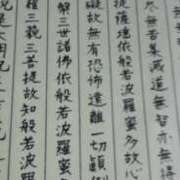 盡無苦集滅道無智亦無
提薩埵依般若波羅蜜多故心
礙故無有恐怖遠離一切顛倒
槃三世諸佛依般若波羅蜜
羅三藐三菩提故知般若波羅
是大明咒